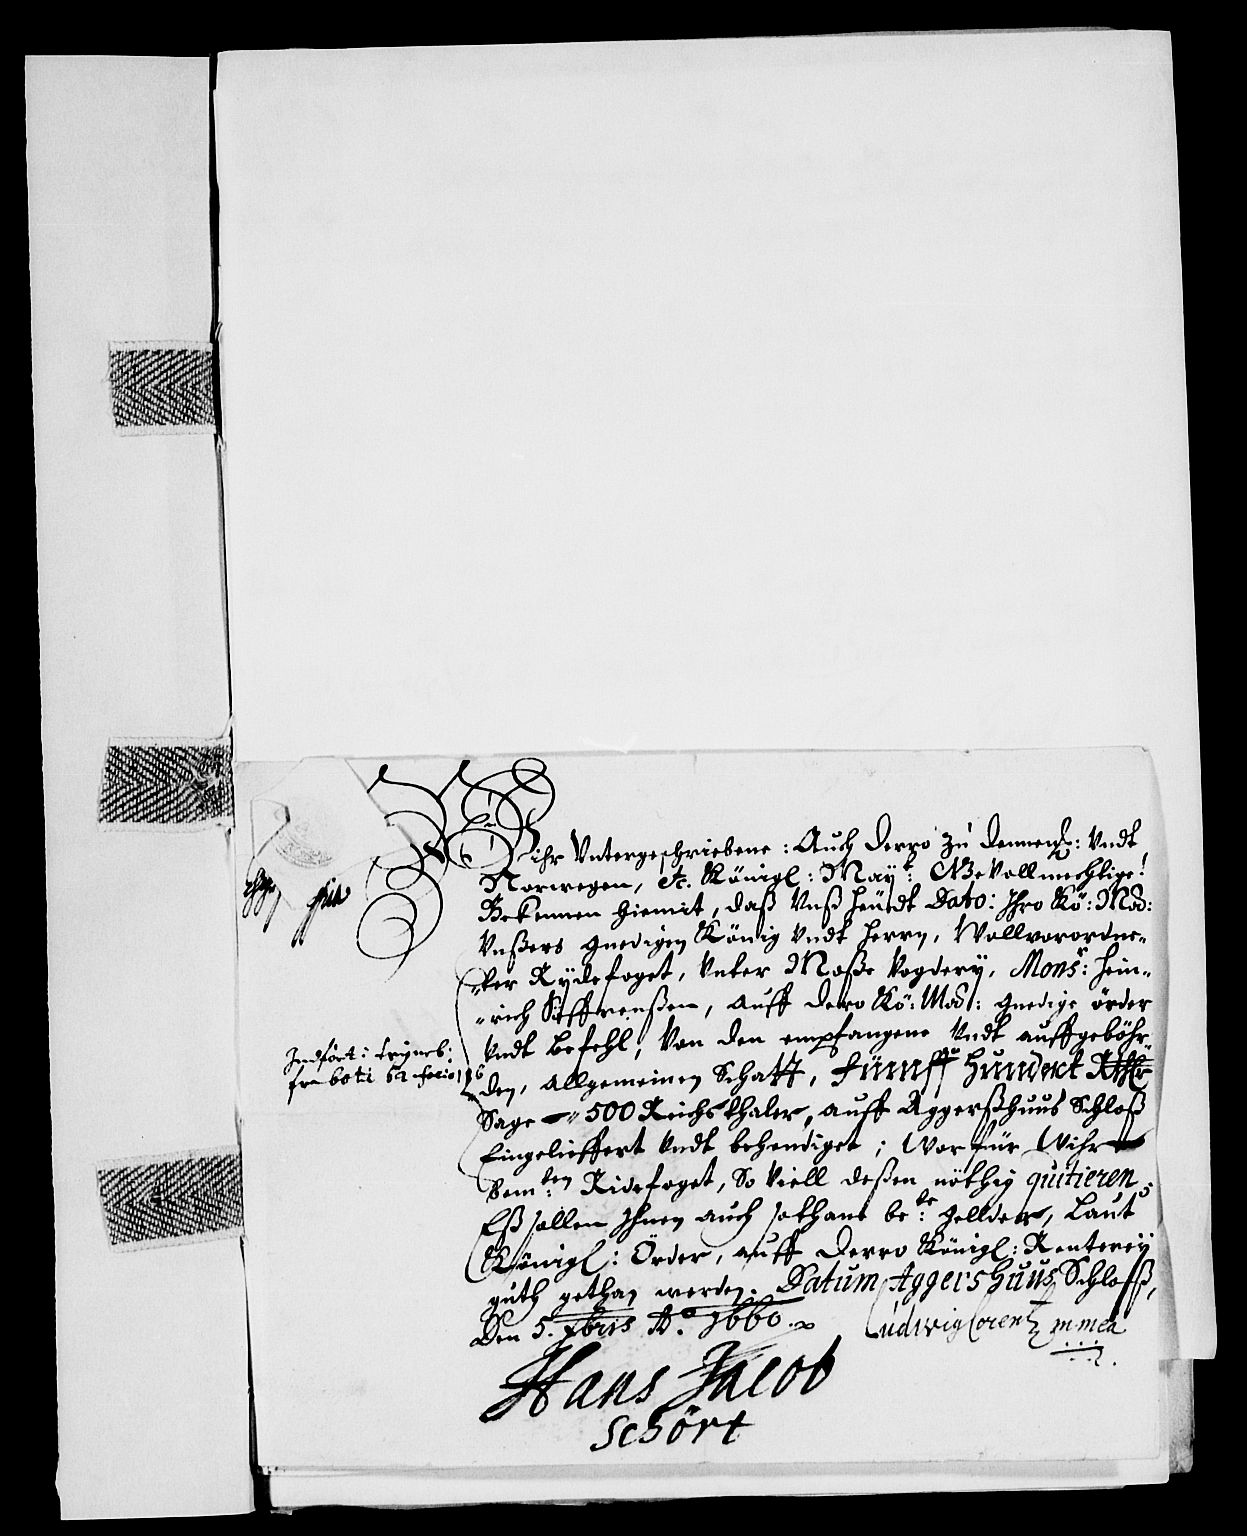 Wihr Untergeschriebene: Auch Derro zu Dennem: Undt
Norwegen, &c. Königl: May: Gevollmechtige!
Bekennen hiemit, daß Unß heüdt Dato: Ihro Kö: Mad:
Unßers gnedigen König Undt Herrn, Wollverordne-
ter Rydefoget, Unter Moße Vogdery, Monsr: Hein-
rich Siffrenßen, auff dero Kö: Mad: gnedige örder
Undt Befehl, Von den empfangene Undt auffgeböhr-
den, Allgemeinen Schatt, Fümff Hundert Rthlr
Sage 500 Reichsthaler, auff Aggerßhuus Schloß
Eingelieffert Undt behendiget; Worfür Wihr
Bem:ten Ridefoget, So Viell deßen nöthig quitieren
Eß sollen Ihnen auch sothane be:te gellder, Laut
Königl: Örder, auff Derro Königl: Renterey
guth gethan werden. Datum Aggershuus Schloß,
Den 5. xbris Ao. 1660.
Ludwig Lorentz
Hans Jacob
Schört
Indført i
fra folio 126